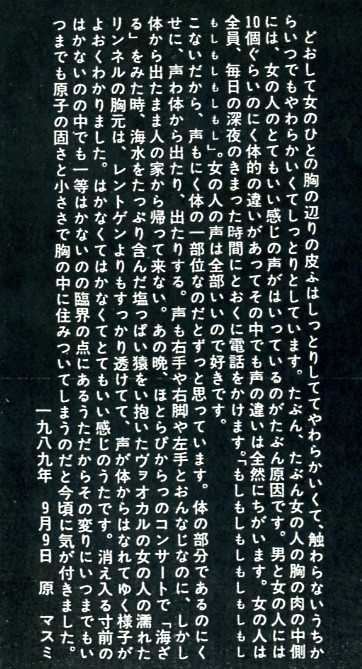 どおして女のひとの胸の辺りの皮ふはしっとりしててやわらかいくて、触わらないうちか
らいつでもやわらかいくてしっとりとしています。たぶん、たぶん女の人の胸の肉の中側
には、女の人のとてもいい感じの声がはいっているのがたぶん原因です。男と女の人には
10個ぐらいのにく体的の違いがあってその中でも声の違いは全然にちがいます。女の人は
全員、毎日の深夜のきまった時間にとおくに電話をかけます。「もしもしもしもしもしもし
もしもしもしもし」。女の人の声は全部いいので好きです。
こないだから、声もにく体の一部位なのだとずっと思っています。体の部分であるのにく
せに、声わ体から出たり、出たりする。声も右手や右脚や左手とおんなじなのに、しかし
体から出たまま人の家から帰って来ない。あの晩、ほとらぴからっつのコンサートで「海ざ
る」をみた時、海水をたっぷり含んだ塩っぱい猿をい抱いたヴォオカルの女の人の濡れた
リンネルの胸元は、レントゲンよりもすっかり透けてて、声が体からはなれてゆく様子が
よおくわかりました。はかなくてはかなくてとてもいい感じのうたです。消え入る寸前の
はかないのの中でも一等はかないのの臨界の点にあるうただからその変りにいつまでもい
つまでも原子の固さと小ささで胸の中に住みついてしまうのだと今頃に気が付きました。
一九八九年 9月9日 原 マスミ